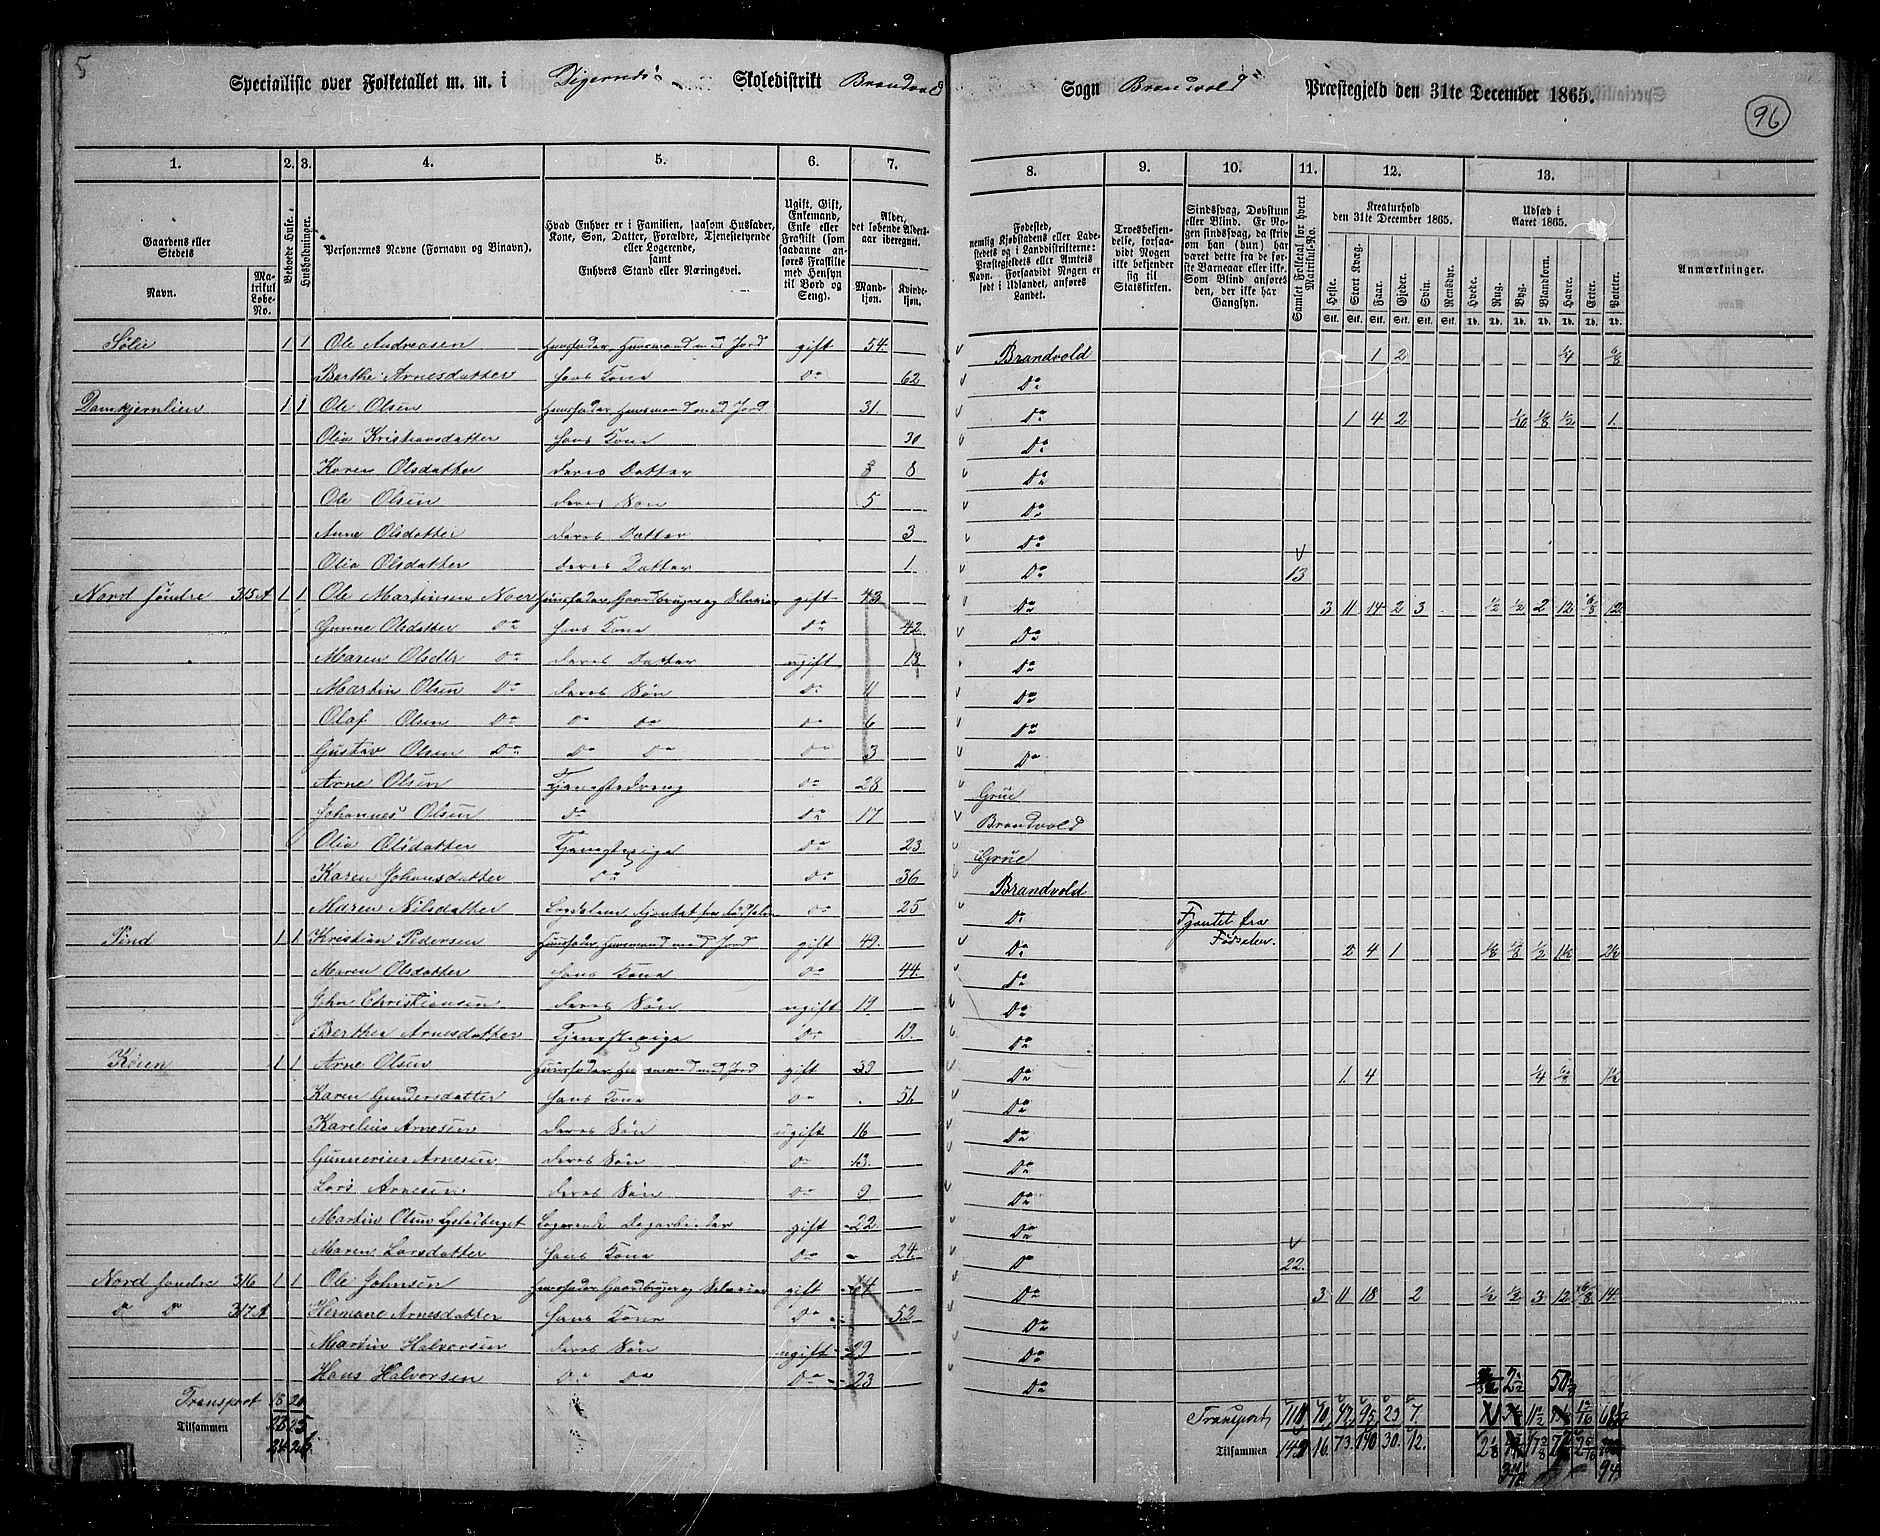 5
Specialliste over Folketallet m. m. i Digernæs Skoledistrikt Brandvold Sogn Brandvold Præstegjeld den 31te December 1865.
96
1. 2. 3. 4. 5. 6. 7. 8. 9. 10. 11. 12. 13.
Gaardens eller Stedets
Navn.
Matrikul Løbe-No.
Beboede Huse.
Husholdninger.
Personernes Navne (Fornavn og Binavn).
Hvad Enhver er i Familien, saasom Husfader, Kone, Søn, Datter, Forældre, Tjenestetyende eller Logerende, samt Enhvers Stand eller Næringsvei.
Ugift, Gift, Enkemand, Enke eller Fraskilt (som saadanne anføres Fraskilte med Hensyn til Bord og Seng).
Alder, det løbende Aldersaar iberegnet.
Mandkjøn. Kvindekjøn.
Fødested, nemlig Kjøbstadens eller Ladestedets og i Landdistrikterne: Præstegjeldets eller Amtets Navn. Forsaavidt Nogen er født i Udlandet, anføres Landet.
Troesbekjendelse, forsaavidt Nogen ikke bekjender sig til Statskirken.
Sindssvag, Døvstum eller Blind. Er Nogen sindssvag, da skriv om han (hun) har været dette fra de første Barneaar eller ikke. Som Blind anføres den, der ikke har Gangsyn.
Samlet Folketal for hvert Matrikul-No.
Kreaturhold den 31te December 1865.
Heste. Stort Kvæg. Faar. Gjeder. Svin. Rensdyr.
Udsæd i Aaret 1865.
Hvede. Rug. Byg. Blandkorn. Havre. Erter. Poteter.
Anmærkninger.
Sølie 1 1 Ole Andreasen Huusfader, Huusmand med Jord gift 54 Brandvold 1 2 1/4 6/8
Berthe Arnesdatter hans Kone Do 62 Do
Damkjernlien 1 1 Ole Olsen Huusfader, Huusmand med Jord 31 Do 1 4 2 1/16 1/8 1/2 1
Olia Kristiansdatter hans Kone 30 Do
Karen Olsdatter deres Datter 8 Do
Ole Olsen deres Søn 5 Do
Anne Olsdatter deres Datter 3 Do
Olia Olsdatter deres Datter 1 Do 13
Nord søndre 315A 1 1 Ole Martinsen Noer Huusfader, Gaardbruger og Selveier gift 43 Do 3 11 14 2 3 1/2 1/2 2 12 6/8 12
Gunne Olsdatter Do hans Kone Do 42 Do
Maren Olsdtr Do deres Datter ugift 13 Do
Martin Olsen Do deres Søn Do 11 Do
Olaf Olsen Do Do Do Do 6 Do
Gustav Olsen Do Do Do Do 3 Do
Arne Olsen Tjenestedreng Do 28 Grue
Johannes Olsen Do Do 17 Brandvold
Olia Olsdatter Tjenestepige Do 23 Grue
Karen Johansdatter Do Do 36 Brandvold
Maren Nilsdatter Legdslem, fjantet fra Fødselen Do 25 Do Fjantet fra Fødselen.
Pind 1 1 Kristian Pedersen Huusfader, Huusmand med Jord gift 49 Do 2 4 1
Maren Olsdatter hans Kone Do 44 Do
John Christiansen deres Søn ugift 19 Do
Berthea Arnesdatter Tjenestepige Do 19 Do
Køien 1 1 Arne Olsen Huusfader, Huusmand med Jord gift 39 Do 1 4 1/4
Karen Gundersdatter hans Kone Do 51 Do
Karelius Arnesen deres Søn ugift 16 Do
Gunnerius Arnesen deres Søn Do 13 Do
Lars Arnesen deres Søn Do 9 Do
Martin Olsen Logerende Dagarbeider gift 22 Do
Maren Larsdatter hans Kone Do 24 Do 22
Nord søndre 316 1 1 Ole Johnsen Huusfader, Gaardbruger og Selveier gift Do 3 11 18 2 1/2 1/2 3 12 6/8 14
Do Do 317A Hermane Arnesdatter hans Kone Do 52 Do
Martin Halvorsen deres Søn ugift 29 Do
Hans Halvorsen Do Do Do 23 Do
Transport 18 20 Transport 110
Tilsammen 23 25 Tilsammen 16 73 30 12
94